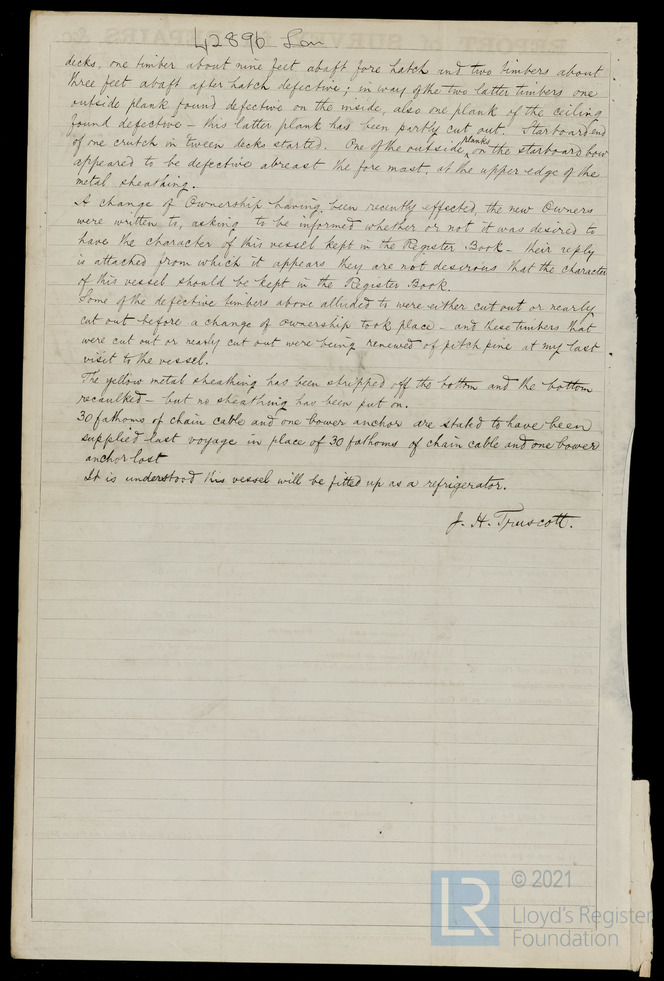 42896 Lon
decks, one timber about nine feet abaft fore hatch and two timbers about
three feet abaft after hatch defective; in way of the two latter timbers one
outside plank found defective on the inside, also one plank of the ceiling
found defective – this latter plank has been partly cut out. Starboard end
of one crutch in tween decks started. One of the outside planks on the starboard bow
appeared to be defective abreast the fore mast, at the upper edge of the
metal sheathing.
A change of Ownership having been recently effected, the new Owners
were written to, asking to be informed whether or not it was desired to
have the character of this vessel kept in the Register Book – their reply
is attached from which it appears they are not desirous that the character
of this vessel should be kept in the Register Book.
Some of the defective timbers above alluded to were either cut out or nearly
cut out before a change of ownership took place – and these timbers that
were cut out or nearly cut out were being renewed of pitch pine at my last
visit to the vessel.
The yellow metal sheathing has been stripped off the bottom and the bottom
recaulked – but no sheathing has been put on.
30 fathoms of chain cable and one bower anchor are stated to have been
supplied last voyage in place of 30 fathoms of chain cable and one bower
anchor lost
It is understood this vessel will be fitted up as a refrigerator.
J. H. Truscott.
LR
© 2021
Lloyd's Register
Foundation